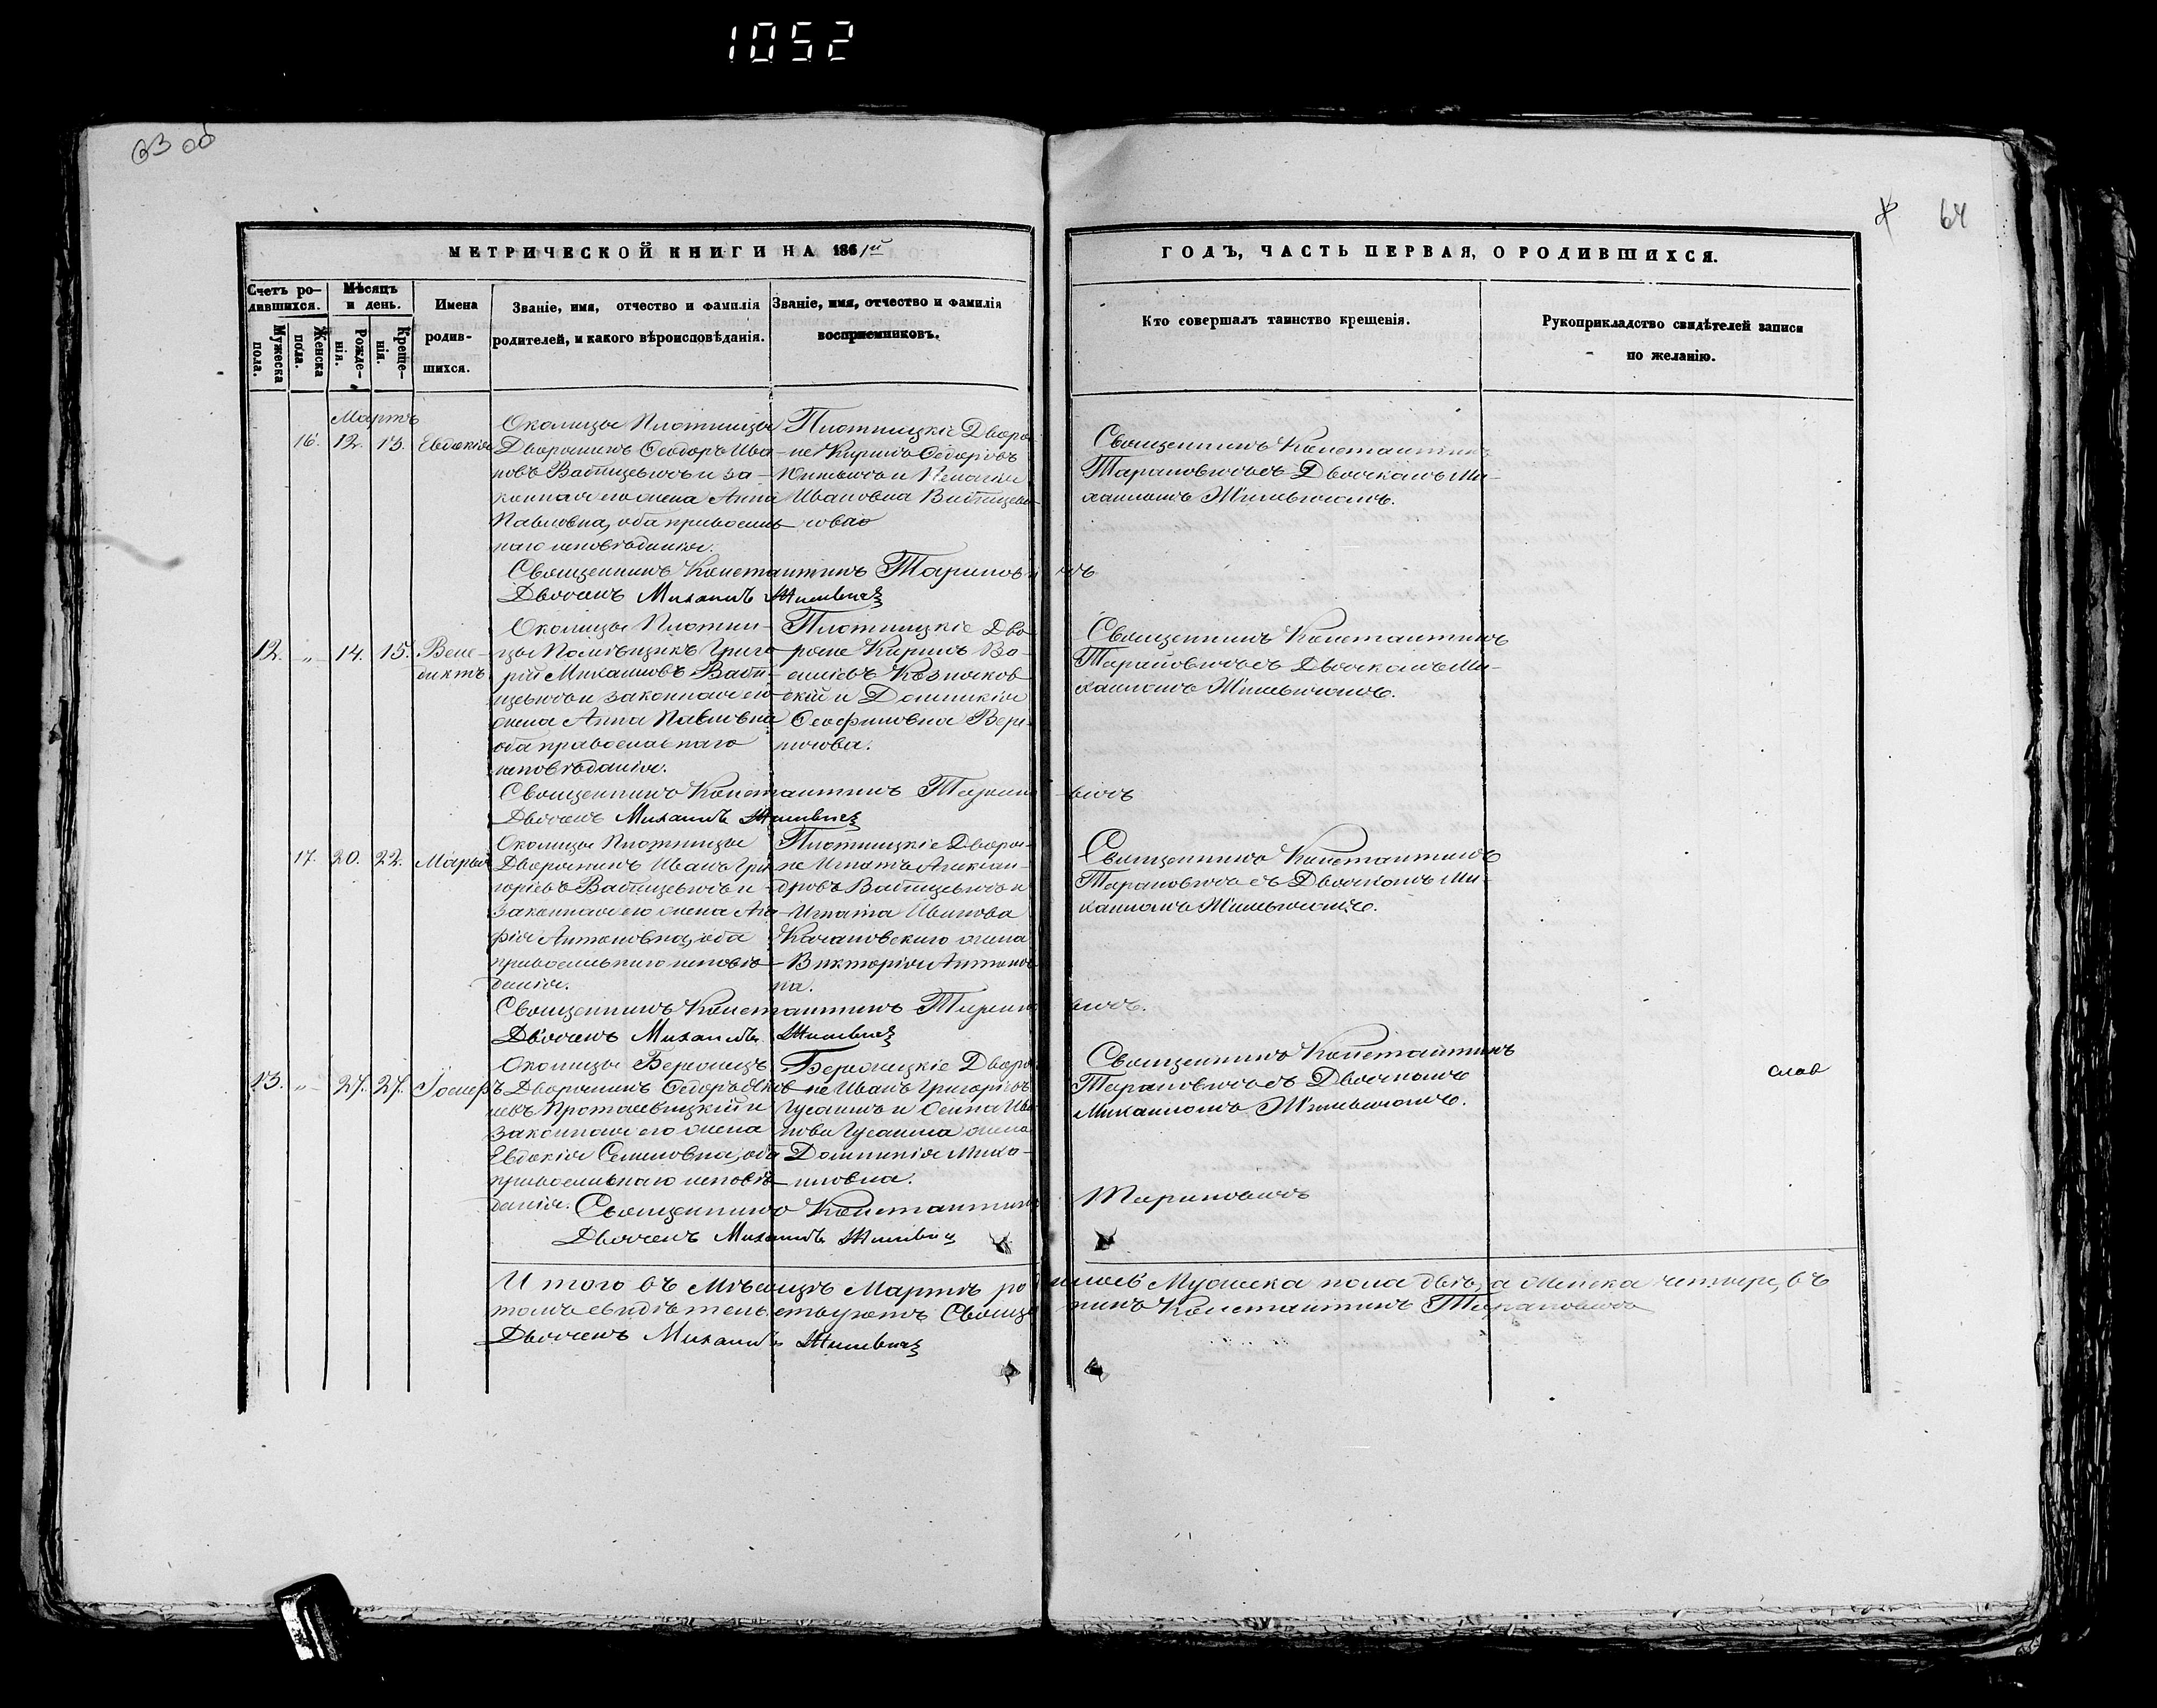 1052
63 об
64
МЕТРИЧЕСКОЙ КНИГИ НА 1861й
ГОДЪ, ЧАСТЬ ПЕРВАЯ, О РОДИВШИХСЯ.
Счетъ ро-
дившихся.
Мужеска
пола.
Женска
пола.
Мѣсяцъ
и день.
Рожде-
нія.
Креще-
нія.
Имена
родив-
шихся.
Званіе, имя, отчество и фамилія
родителей, и какого вѣроисповѣданія.
Званіе, имя, отчество и фамилія
воспріемниковъ.
Кто совершалъ таинство крещенія.
Рукоприкладство свидѣтелей записи
по желанію.
Мартъ
16. 12. 13. Евдокія
Околицы Плотницы
Дворянинъ Ѳеодоръ Ива-
новъ и за-
конная его жена Анна
Павловна, оба православ-
наго исповѣданія.
Плотницкіе Дворя-
не Кирилъ Ѳедоровъ
и Пелагія
Ивановна
Священникъ Константинъ
Тарановичъ съ Дьячкомъ Ми-
хаиломъ Жилевичомъ.
Священникъ Константинъ Тарановичъ
Дьячекъ Михаилъ Жилевичъ
12. " 14. 15. Вене-
диктъ
Околицы Плотни-
цы Помѣщикъ Григо-
рій Михаиловъ
и законная его
жена Анна Павловна
оба православнаго
исповѣданія.
Плотницкіе Дво-
ряне Кирилъ Ва-
силіевъ
и Доминикія
Ѳеофиловна
Священникъ Константинъ
Тарановичъ съ Дьячкомъ Ми-
хаиломъ Жилевичомъ.
Священникъ Константинъ Тарановичъ
Дьячекъ Михаилъ Жилевичъ
17. 20. 22. Марья
Околицы Плотницы
Дворянинъ Иванъ Гри-
горіевъ и
законная его жена Ага-
фія Антоновна, оба
православнаго исповѣ-
данія.
Плотницкіе Дворя-
не Игнатъ Александ-
ровъ и
Игната Иванова
Качановскаго жена
Викторія Антонов-
на.
Священникъ Константинъ
Тарановичъ съ Дьячкомъ Ми-
хаиломъ Жилевичомъ.
Священникъ Константинъ Тарановичъ.
Дьячекъ Михаилъ Жилевичъ
13. " 27. 27. Іосифъ
Околицы
Дворянинъ Ѳедоръ Яков-
левъ Протасевицкій и
законная его жена
Евдокія Семеновна, оба
православнаго исповѣ-
данія.
Дворя-
не Иванъ Григоріевъ
и Осипа Ива-
нова жена
Доминикія Миха-
иловна.
Священникъ Константинъ
Тарановичъ съ Дьячкомъ
Михаиломъ Жилевичомъ.
Священникъ Константинъ Тарановичъ
Дьячекъ Михаилъ Жилевичъ
Итого въ Мѣсяцѣ Мартѣ родилось Мужеска пола два, а женска четыре, въ
томъ свидѣтельствуютъ Константинъ Тарановичъ
Дьячекъ Михаилъ Жилевичъ